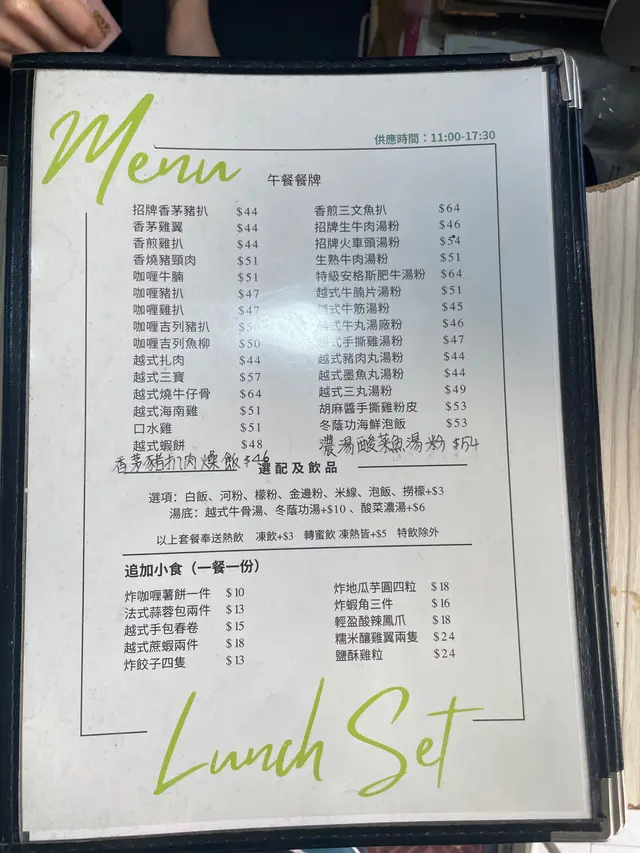 Menu
供應時間：11:00-17:30
午餐餐牌
招牌香茅豬扒 $44
香茅雞翼 $44
香煎雞扒 $44
香燒豬頸肉 $51
咖喱牛腩 $51
咖喱豬扒 $47
咖喱雞扒 $47
咖喱吉列豬扒
咖喱吉列魚柳 $50
越式扎肉 $44
越式三寶 $57
越式燒牛仔骨 $64
越式海南雞 $51
口水雞 $51
越式蝦餅 $48
香茅豬扒肉燥飯 $46
香煎三文魚扒 $64
招牌生牛肉湯粉 $46
招牌火車頭湯粉 $54
生熟牛肉湯粉 $51
特級安格斯肥牛湯粉 $64
越式牛腩片湯粉 $51
越式牛筋湯粉 $45
越式牛丸湯廠粉 $46
越式手撕雞湯粉 $47
越式豬肉丸湯粉 $44
越式墨魚丸湯粉 $44
越式三丸湯粉 $49
胡麻醬手撕雞粉皮 $53
冬蔭功海鮮泡飯 $53
濃湯酸菜魚湯粉 $54
選配及飲品
選項：白飯、河粉、檬粉、金邊粉、米線、泡飯、撈檬+$3
湯底：越式牛骨湯、冬蔭功湯+$10 、酸菜濃湯+$6
以上套餐奉送熱飲 凍飲+$3 轉蜜飲 凍熱皆+$5 特飲除外
追加小食（一餐一份）
炸咖喱薯餅一件 $10
法式蒜蓉包兩件 $13
越式手包春卷 $15
越式蔗蝦兩件 $18
炸餃子四隻 $13
炸地瓜芋圓四粒 $18
炸蝦角三件 $16
輕盈酸辣鳳爪 $18
糯米釀雞翼兩隻 $24
鹽酥雞粒 $24
Lunch Set